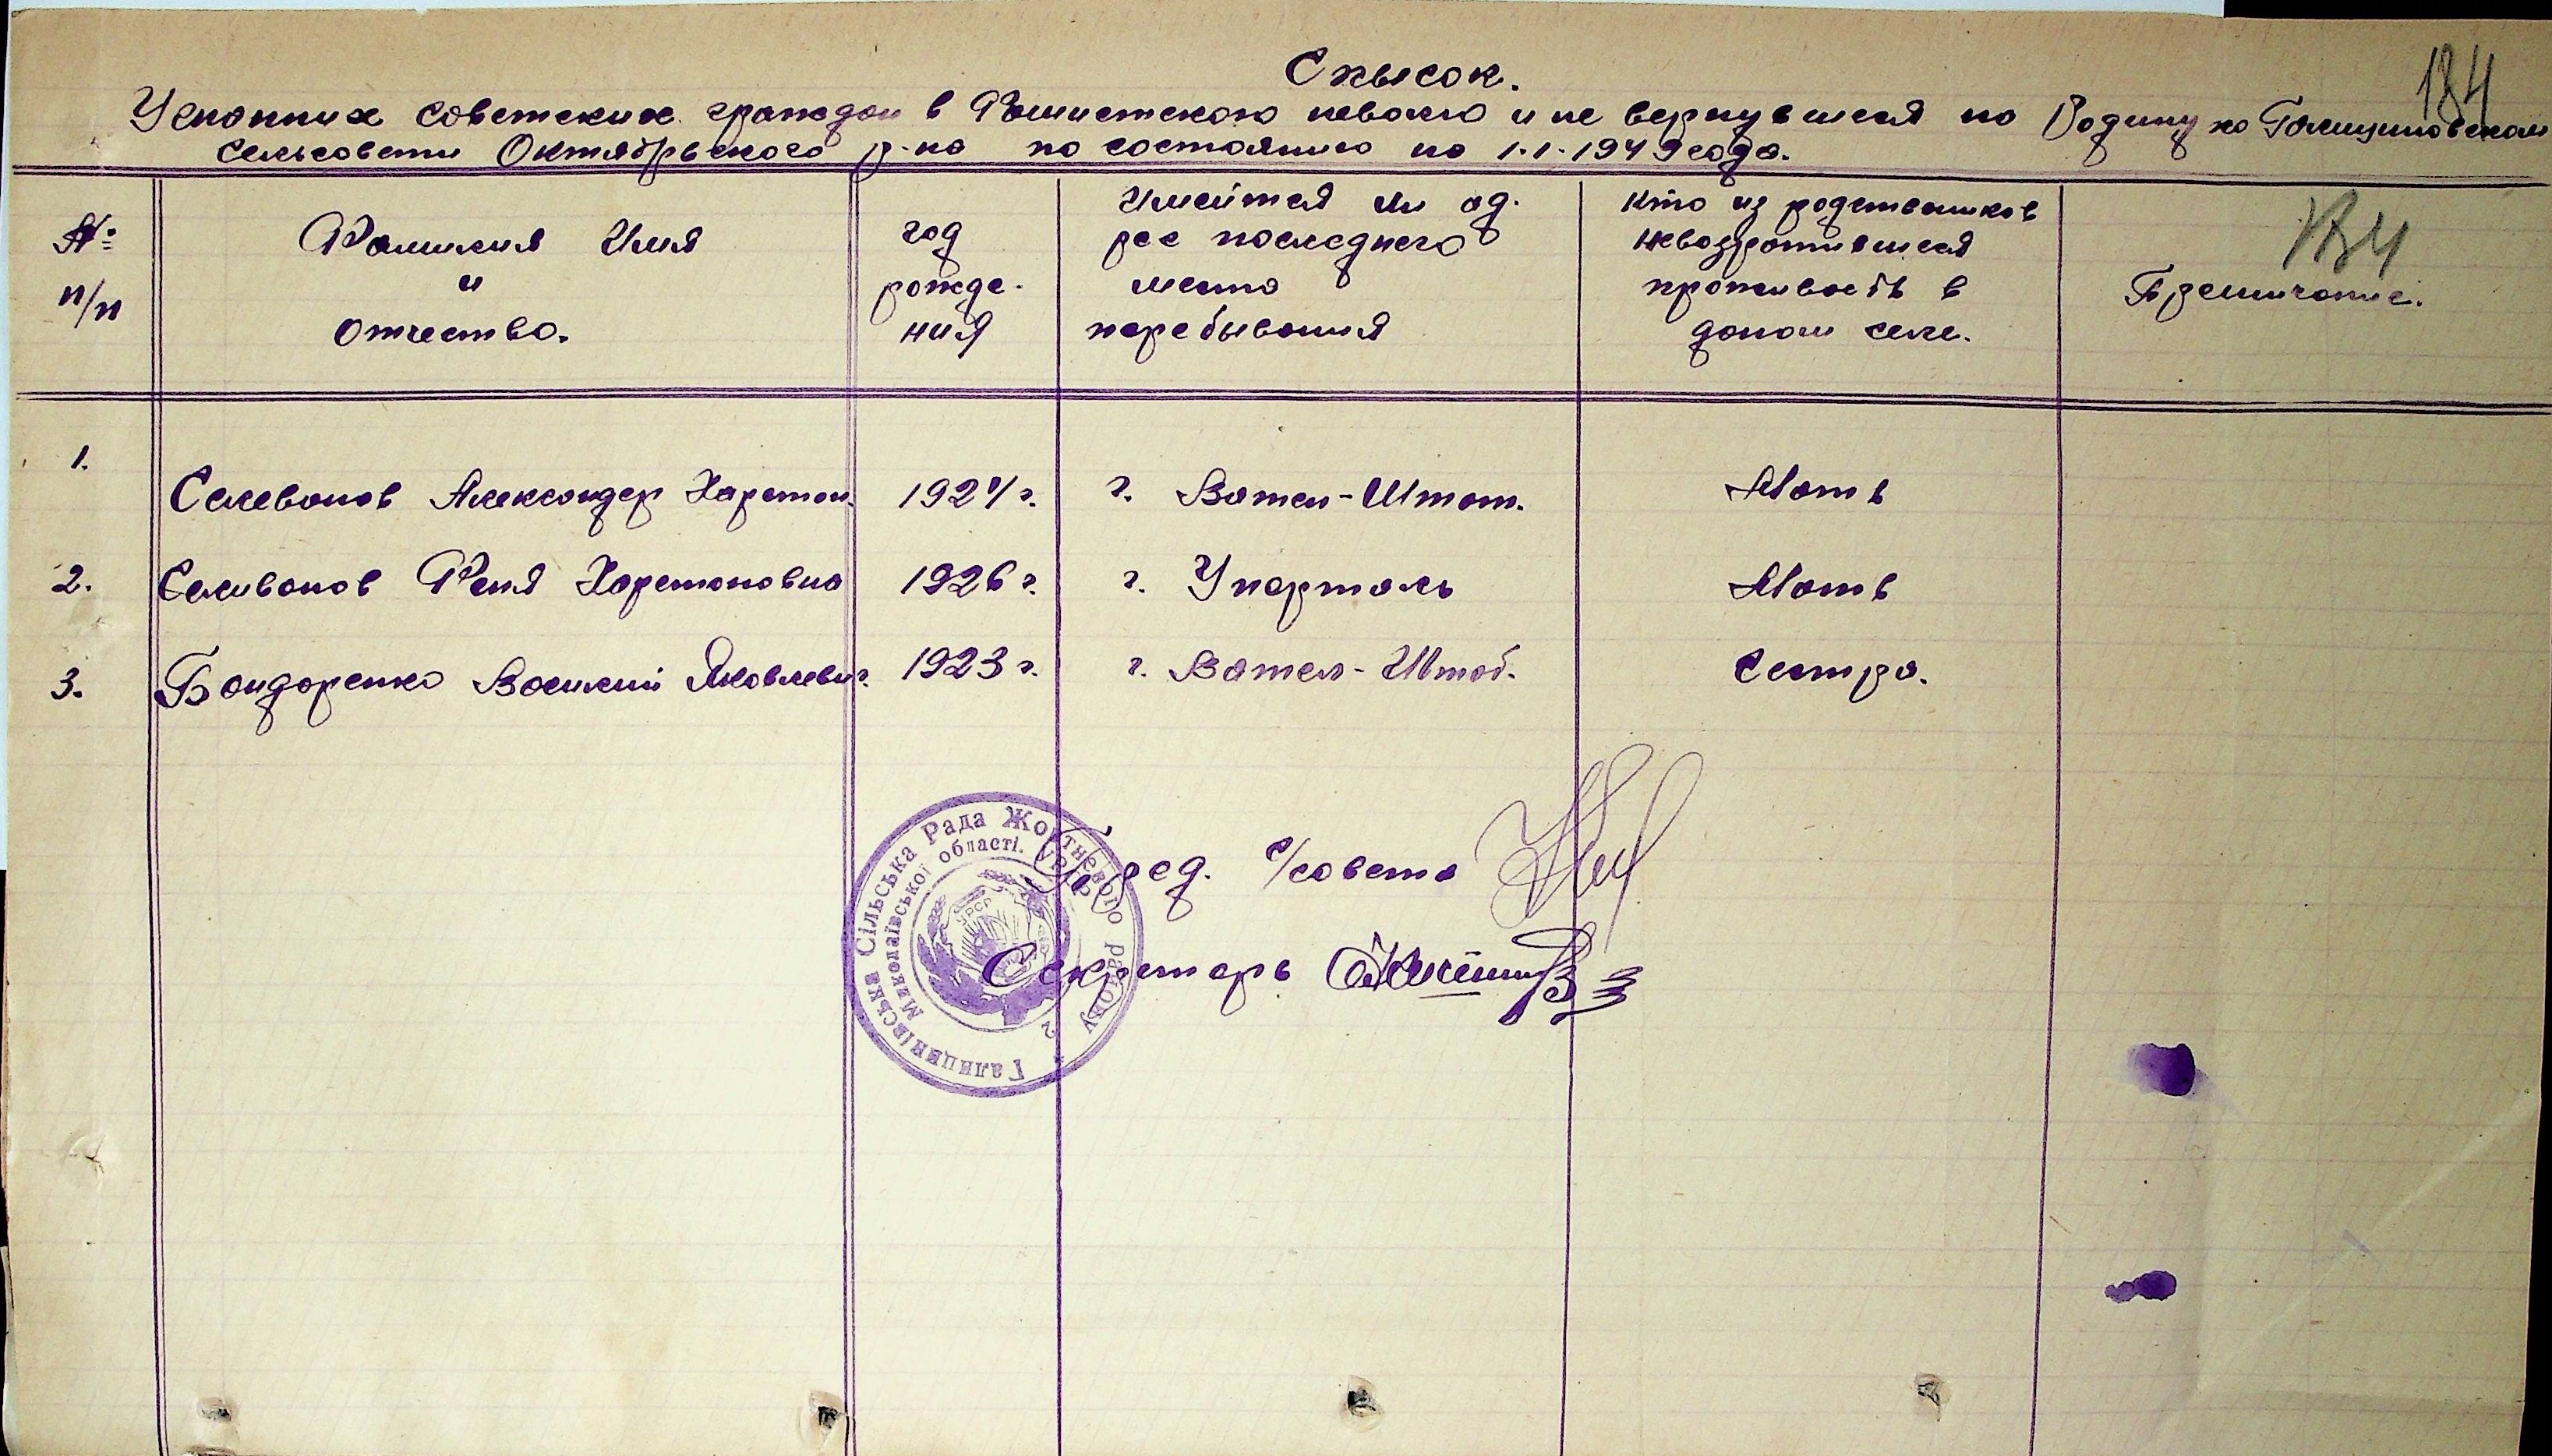 184
Спысок.
Угнанних советских граждан в Фашистского неволю и не вернувшися на Родину по Галициновском
сельсовети Октябрьского р-на по состоянию на 1.1.1949 года.
№ п/п
Фамилия Имя и Отчество.
год рожде-ния
Имейтся ли ад-рес последнего места перебывания
Кто из родствеников невозратившися проживаеть в даном селе.
184
Премичание.
1. Селеванов Александер Харетон. 1924 г. г. Ватен-Штат. Мать
2. Селиванов Феня Харетоновна 1926 г. г. Упарталь Мать
3. Бондаренко Василий Яковлевич. 1923 г. г. Ватен-Штат. Сестра.
Пред. с/совета
Секретарь
Галицинівська Сільська Рада Жовтневого району
Миколаївської області. УРСР
УРСР
2